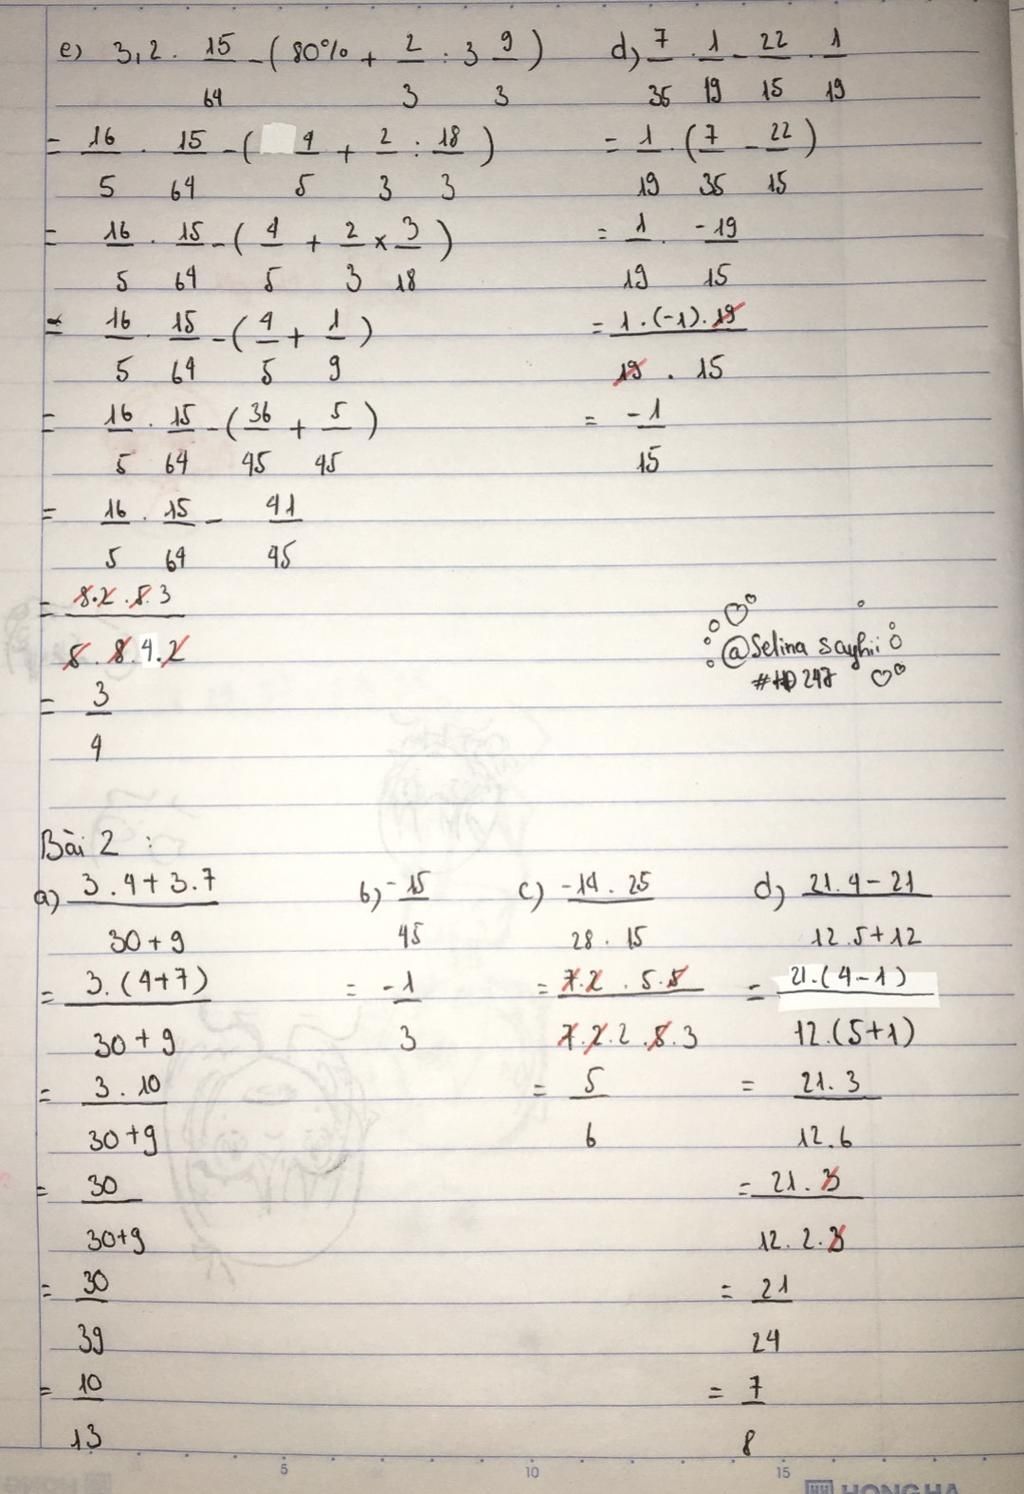 e) 3,2 . 15/64 - ( 80% + 2/3 : 3 9/3 )
= 16/5 . 15/64 - ( 4/5 + 2/3 : 18/3 )
= 16/5 . 15/64 - ( 4/5 + 2/3 x 3/18 )
= 16/5 . 15/64 - ( 4/5 + 1/9 )
= 16/5 . 15/64 - ( 36/45 + 5/45 )
= 16/5 . 15/64 - 41/45
= 8.2.5.3 / 5.8.4.2
= 3/4
d) 7/35 . 1/19 - 22/15 . 1/19
= 1/19 . ( 7/35 - 22/15 )
= 1/19 . -19/15
= 1.(-1).19 / 19 . 15
= -1/15
@Selina sayhii
#HD247
Bài 2 :
a) 3.4+3.7 / 30+9
= 3.(4+7) / 30+9
= 3.10 / 30+9
= 30 / 30+9
= 30/39
= 10/13
b) -15/45
= -1/3
c) -14.25 / 28.15
= 7.2.5.5 / 7.2.2.5.3
= 5/6
d) 21.4-21 / 12.5+12
= 21.(4-1) / 12.(5+1)
= 21.3 / 12.6
= 21.3 / 12.2.3
= 21/24
= 7/8
5 10 15
HONG HA